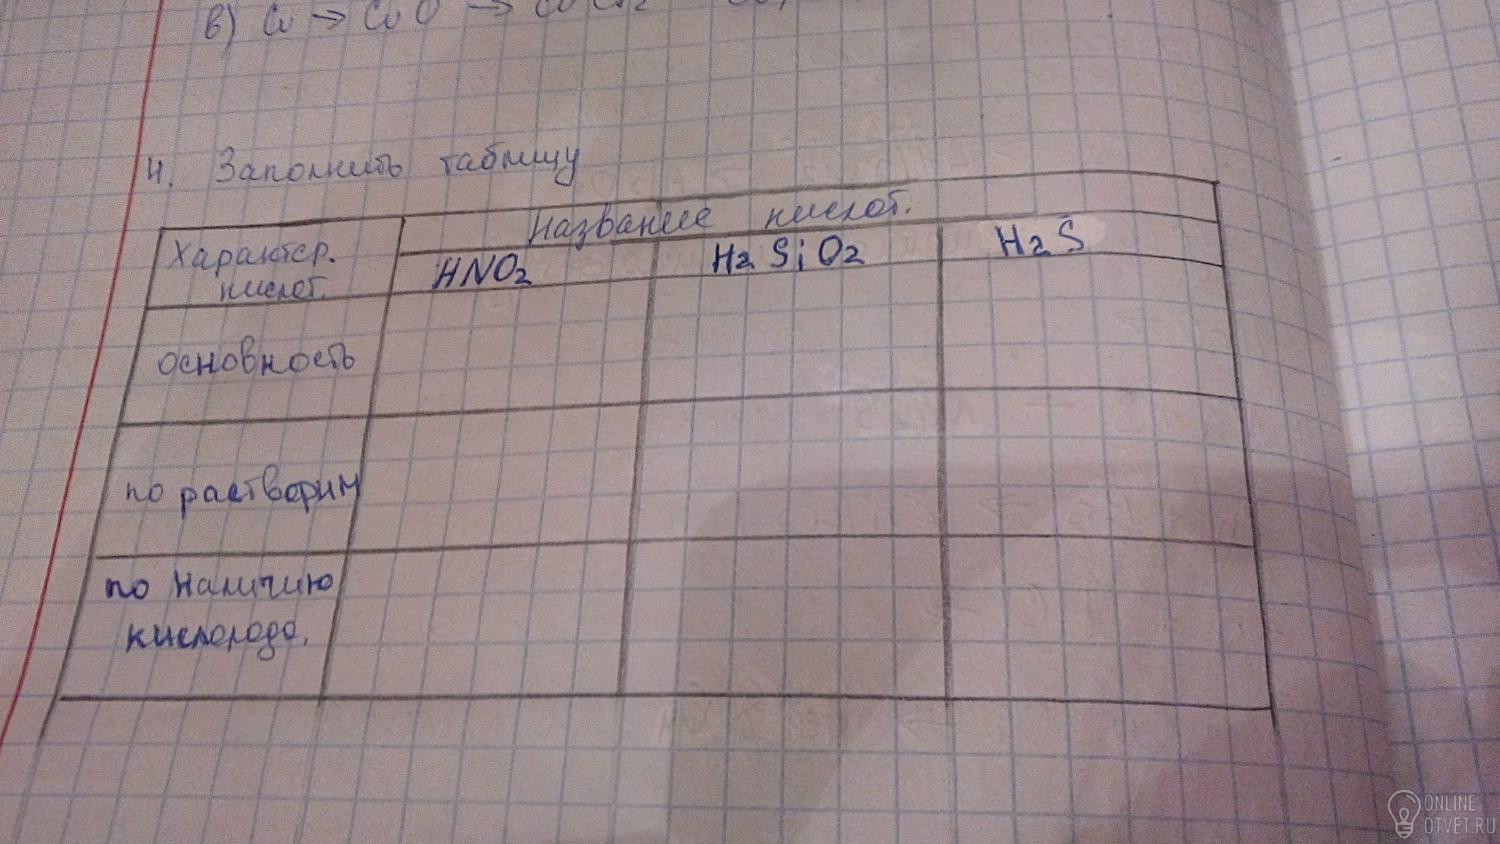 в) Cu → CuO →
4. Заполнить таблицу
Характер. кислот.
Название кислот.
HNO2
H2SiO2
H2S
основность
по раствори
по наличию
кислорода.
ONLINE
OTVET.RU